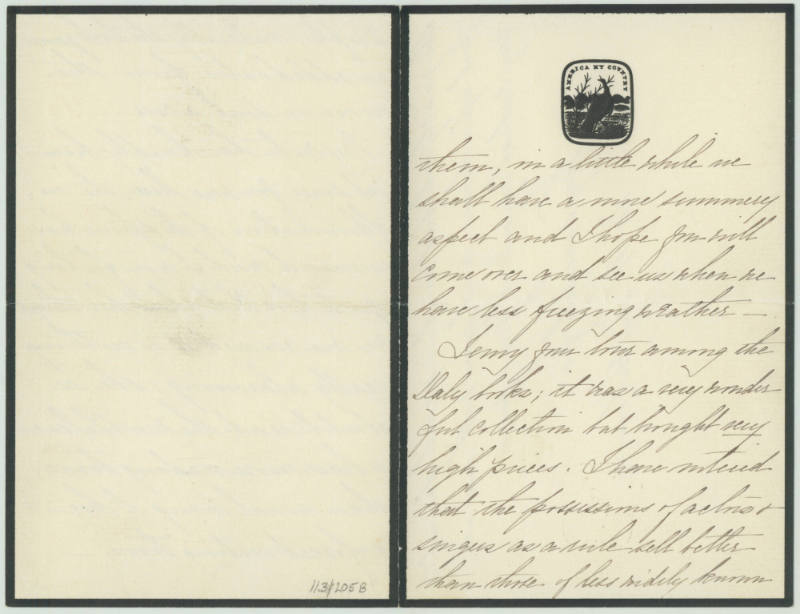 AMERICA MY COUNTRY
them, in a little while we
shall have a more summery
aspect and I hope you will
come over and see us when we
have less freezing weather —
I envy your hour among the
Daly books; it was a very wonder
ful collection but brought very
high prices. I have noticed
that the possessions of actors &
singers as a rule sell better
than those of less widely known
113/205B